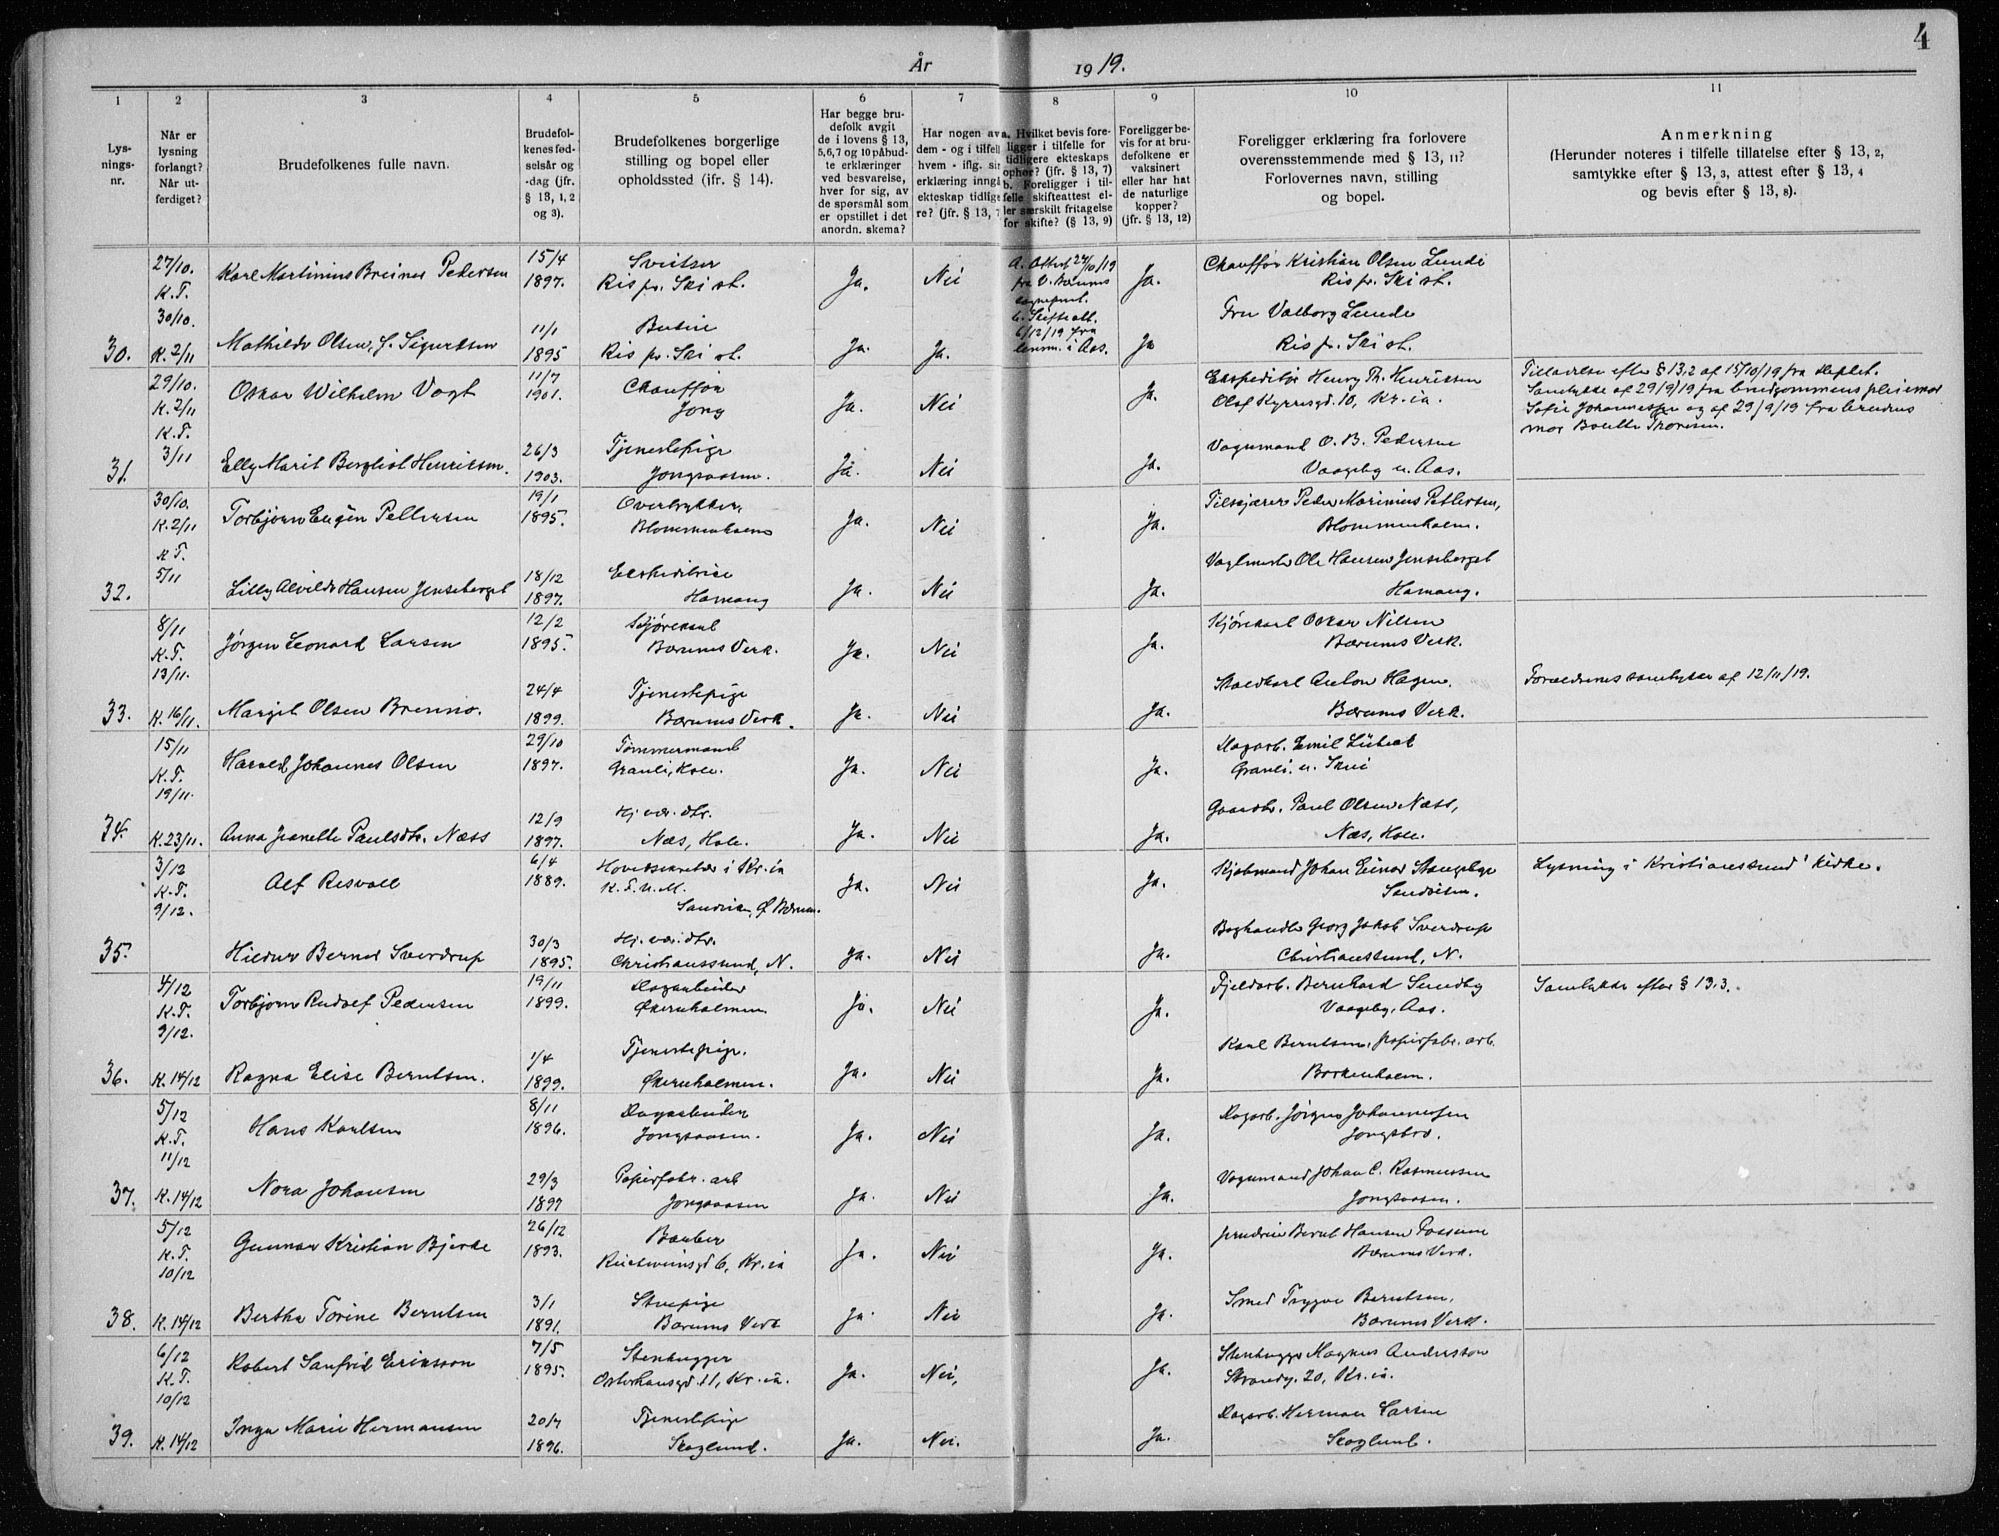 År 1919.
4
1
2
3
4
5
6
7
8
9
10
11
Lys-
nings-
nr.
Når er
lysning
forlangt?
Når ut-
ferdiget?
Brudefolkenes fulle navn.
Brudefol-
kenes fød-
selsår og
-dag (jfr.
§ 13, 1, 2
og 3).
Brudefolkenes borgerlige
stilling og bopel eller
opholdssted (ifr. § 14).
Har begge bru-
defolk avgit
de i lovens § 13,
5,6,7 og 10 påbud-
te erklæringer
ved besvarelse,
hver for sig, av
de spørsmål som
er opstillet i det
anordn. skema?
Har nogen av
dem - og i tilfell
hvem - iflg. si
erklæring inngå
ekteskap tidlige
re? (jfr. § 13, 7
a. Hvilket bevis fore-
ligger i tilfelle for
tidligere ekteskaps
ophør? (jfr. § 13, 7)
b. Foreligger i til-
felle skifteattest el-
ler særskilt fritagelse
for skifte? (§ 13, 9)
Foreligger be-
vis for at bru-
defolkene er
vaksinert
eller har hat
de naturlige
kopper?
(jfr. § 13, 12)
Foreligger erklæring fra forlovere
overensstemmende med § 13, 11?
Forlovernes navn, stilling
og bopel.
Anmerkning
(Herunder noteres i tilfelle tillatelse efter § 13, 2,
samtykke efter § 13, 3, attest efter § 13, 4
og bevis efter § 13, 8).
30.
27/10.
K.T.
30/10.
K. 2/11
Karl Martinius Breines Pedersen
15/4
1897.
Sveitser
Ris pr. Ski st.
Ja.
Nei
A. Attest 27/10/19
fra V. Bærums
sogneprest.
b. Skifteatt.
6/12/19 fra
lensm. i Aas.
Ja.
Chauffør Kristian Olsen Lunde
Ris pr. Ski st.
Mathilde Olsen, f. Sigurdsen
11/1
1895
Ris pr. Ski st.
Ja.
Ja.
Ja
Fru Valborg Lunde
Ris pr. Ski st.
31.
29/10.
K. 2/11
K.T.
3/11
Oskar Wilhelm Vogt
11/7
1901.
Chauffør
Jong
Ja.
Nei
Ja.
Ekspeditør Henry Th. Henriksen
Olaf Kyrresgd. 10, Kr.ia.
Tilladelse efter § 13.2 af 15/10/19 fra deptet.
Samtykke af 29/9/19 fra brudgommens pleiemor
Sofie Johannessen og af 29/9/19 fra brudens
mor Bolette Thoresen.
Elly Marit Bergliot Henriksen.
26/3
1903.
Tjenestepige
Jongsaasen.
Ja
Nei
Ja.
Vognmand O. B. Pedersen
Vaageby u. Aas.
32.
30/10.
K. 2/11
K.T.
5/11
Torbjørn Eugen Pettersen
19/1
1895.
Overtrykker,
Blommenholm
Ja.
Nei
Ja.
Tilskjærer Peder Marinius Pettersen,
Blommenholm.
Lilly Alvilde Hansen Jenseberget
18/12
1897.
Ekspeditrice
Hamang
Ja.
Nei
Ja.
Vogtmester Ole Hansen Jenseberget
Hamang.
33.
8/11
K.T.
13/11.
K. 16/11.
Jørgen Leonard Larsen
12/2
1895.
Kjørekarl
Bærums Verk.
Ja.
Nei
Ja.
Kjørekarl Oskar Nilsen
Bærums Verk.
Margit Olsen Brenno.
24/4
1899.
Tjenestepige
Bærums Verk.
Ja.
Nei
Ja.
Staldkarl Anton Hagen.
Bærums Verk.
Forældrenes samtykke af 12/11/19.
34.
15/11
K.T.
19/11.
K. 23/11.
Harald Johannes Olsen
29/10
1897.
Tømmermand
Granli, Hole.
Ja.
Nei
Ja.
Dagarb. Emil Lübeck
Granli. u. Skui
Anna Jeanette Paulsdtr. Næss
12/9
1897.
Hj.vær. dtr.
Næs, Hole.
Ja.
Nei
Ja.
Gaardbr. Paul Olsen Næss,
Næs, Hole.
35.
3/12
K.T.
9/12.
Alf Risvoll
6/4
1889.
Hovedsekretær i Kr.ia
K.F.U.M.
Sandviken, Ø. Bærum.
Ja.
Nei
Ja.
Kjøbmand Johan Einar Stangebye
Sandviken.
Lysning i Kristianssund's kirke.
Hildur Bernt Sverdrup
30/3
1895.
Hj. vær. dtr.
Christianssund, N.
Ja.
Nei
Ja.
Boghandler Georg Jakob Sverdrup
Christianssund, N.
36.
4/12
K.T.
9/12.
K. 14/12
Torbjørn Rudolf Pedersen
19/11
1899.
Dagarbeider
Økernholmen.
Ja.
Nei
Ja.
Fjeldarb. Bernhard Sundby
Vaageby, Aas.
Samtykke efter § 13,3.
Ragna Elise Berntsen.
1/4
1899.
Tjenestepige.
Økernholmen.
Ja.
Nei
Ja.
Karl Berntsen, papirfabr. arb.
Borkenholm.
37.
5/12
K.T.
11/12
K. 14/12
Hans Karlsen
8/11
1896.
Dagarbeider
Jongsaasen.
Ja.
Nei
Ja.
Dagarb. Jørgen Johannessen
Jongsbro.
Nora Johansen
29/3
1897
Papirfabr. arb
Jongsaasen
Ja.
Nei
Ja.
Vognmand Johan C. Rasmussen
Jongsaasen.
38.
5/12
K.T.
10/12
K. 14/12
Gunnar Kristian Bjerke
26/12
1893.
Barber
Kr.ia
Ja.
Nei
Ja.
Bernt Hansen Fossum
Bærums Verk.
Bertha Torine Berntsen
3/1
1891.
Stuepige
Bærums Verk
Ja
Nei
Ja.
Smed Trygve Berntsen,
Bærums Verk.
39.
6/12
K.T.
10/12
K. 14/12
Robert Sanfrid Eriksson
7/5
1895.
Stenhugger
Osterhausgd. 11, Kr.ia.
Ja.
Nei,
Ja.
Stenhugger Magnus Andersson
Strandg. 20, Kr.ia.
Inga Marie Hermansen
20/7
1896.
Tjenestepige
Skoglund.
Ja.
Nei.
Ja.
Dagarb. Herman Larsen
Skoglund.